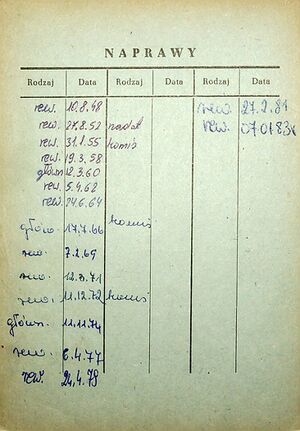 NAPRAWY
Rodzaj Data Rodzaj Data Rodzaj Data
rew. 10.8.48 rew. 27.2.81
rew. 27.8.52
rew. 31.1.55 komis
rew. 19.3.58
główn. 12.3.60
rew. 5.4.62
rew. 24.6.64
komis
główn. 17.7.66
rew. 7.2.69
rew. 12.3.71
rew. 11.12.72 komis
główn. 11.11.74
rew. 6.4.77
rew. 24.4.79